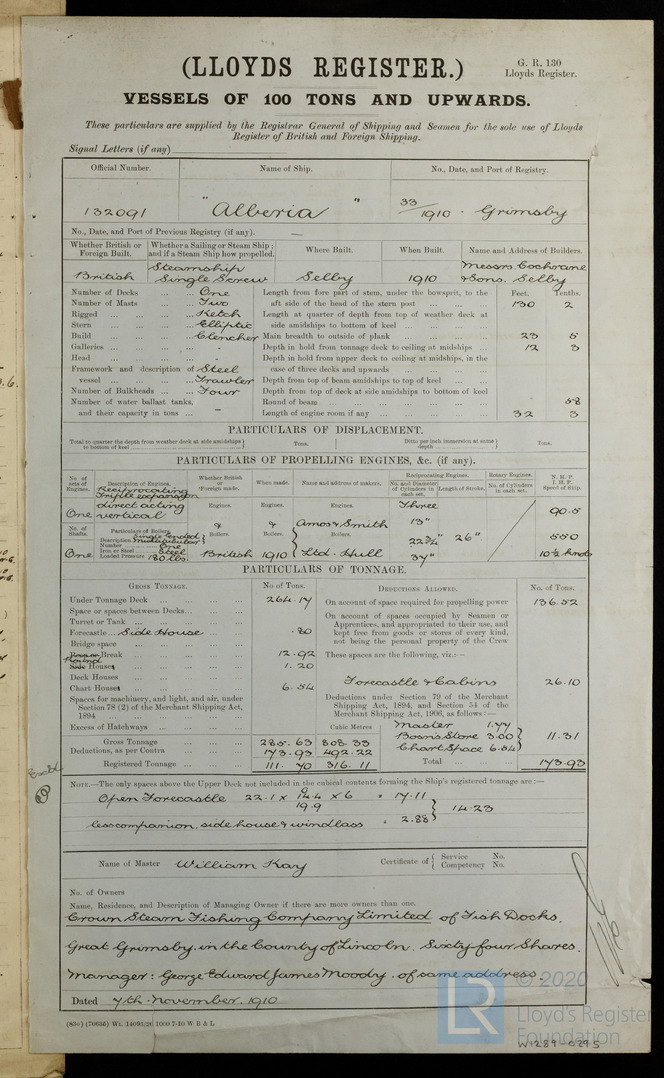 (LLOYDS REGISTER.)
G. R. 130
Lloyds Register.
VESSELS OF 100 TONS AND UPWARDS.
These particulars are supplied by the Registrar General of Shipping and Seamen for the sole use of Lloyds
Register of British and Foreign Shipping.
Signal Letters (if any)
Official Number. Name of Ship. No., Date, and Port of Registry.
132091 "Alberia" 33/1910 . Grimsby
No., Date, and Port of Previous Registry (if any). —
Whether British or Foreign Built. Whether a Sailing or Steam Ship; and if a Steam Ship how propelled. Where Built. When Built. Name and Address of Builders.
British Steamship Single Screw Selby 1910 Messrs. Cochrane & Sons. Selby
Number of Decks ... ... One Length from fore part of stem, under the bowsprit, to the Feet. Tenths.
Number of Masts ... ... Two aft side of the head of the stern post ... ... ... 130 2
Rigged ... ... ... ... Ketch Length at quarter of depth from top of weather deck at
Stern ... ... ... ... Elliptic side amidships to bottom of keel ... ... ...
Build ... ... ... ... Clencher Main breadth to outside of plank ... ... ... 23 5
Galleries ... ... ... - Depth in hold from tonnage deck to ceiling at midships ... 12 3
Head ... ... ... - Depth in hold from upper deck to ceiling at midships, in the
Framework and description of Steel case of three decks and upwards ... ... ...
vessel ... ... ... ... Trawler Depth from top of beam amidships to top of keel ... ...
Number of Bulkheads ... ... Four Depth from top of deck at side amidships to bottom of keel
Number of water ballast tanks, Round of beam ... ... ... ... .58
and their capacity in tons ... – Length of engine room if any ... ... ... 32 3
PARTICULARS OF DISPLACEMENT.
Total to quarter the depth from weather deck at side amidships to bottom of keel Tons. Ditto per inch immersion at same depth Tons.
PARTICULARS OF PROPELLING ENGINES, &c. (if any).
No. of sets of Engines. Description of Engines. Whether British or Foreign made. When made. Name and address of makers. Reciprocating Engines. Rotary Engines. N. H. P.
No. and Diameter of Cylinders in each set. Length of Stroke. No. of Cylinders in each set. I. H. P. Speed of Ship.
Reciprocating
Triple expansion
direct acting Engines. Engines. Engines. Three
One vertical 13" 90.5
No. of Shafts. Particulars of Boilers. & & Amos & Smith 22¾" 26" 550
Description Single ended Multitubular Boilers. Boilers. Boilers.
Number One
Iron or Steel Steel
One Loaded Pressure 180 lbs. British 1910 Ltd. Hull 37" 10½ knots
PARTICULARS OF TONNAGE.
GROSS TONNAGE. No of Tons. DEDUCTIONS ALLOWED. No. of Tons.
Under Tonnage Deck ... ... ... 264.17 On account of space required for propelling power 136.52
Space or spaces between Decks... ... ... On account of spaces occupied by Seamen or
Turret or Tank ... ... ... ... Apprentices, and appropriated to their use, and
Forecastle... Side House .80 kept free from goods or stores of every kind,
Bridge space ... ... ... not being the personal property of the Crew
Poop or Break ... ... ... 12.92 These spaces are the following, viz.:—
Round
Side Houses ... ... ... 1.20
Deck Houses ... ... ... Forecastle & Cabins 26.10
Chart House ... ... ... 6.54
Spaces for machinery, and light, and air, under Deductions under Section 79 of the Merchant
Section 78 (2) of the Merchant Shipping Act, Shipping Act, 1894, and Section 54 of the
1894 ... ... ... ... Merchant Shipping Act, 1906, as follows:—
Excess of Hatchways ... ... ... Cubic Metres Master 1.77
Gross Tonnage ... ... 285.63 808.33 Boosn's Store 3.00 11.31
Deductions, as per Contra ... ... 173.93 492.22 Chart Space 6.54
Registered Tonnage ... ... 111.70 316.11 Total ... ... ... 173.93
NOTE.—The only spaces above the Upper Deck not included in the cubical contents forming the Ship's registered tonnage are:—
Open Forecastle 22.1 x 14.4 x 6 = 17.11
19.9 14.23
less companion, side house & windlass = 2.88
Name of Master William Kay Certificate of Service No.
Competency No.
No. of Owners
Name, Residence, and Description of Managing Owner if there are more owners than one.
Crown Steam Fishing Company Limited of Fish Docks.
Great Grimsby in the County of Lincoln. Sixty four Shares.
Manager: George Edward James Moody. of same address.
Dated 7th. November. 1910
(830) (70635) Wt. 14095/26 1000 7-10 W B & L
© 2020
LR Lloyd's Register
Foundation
W1289-0295